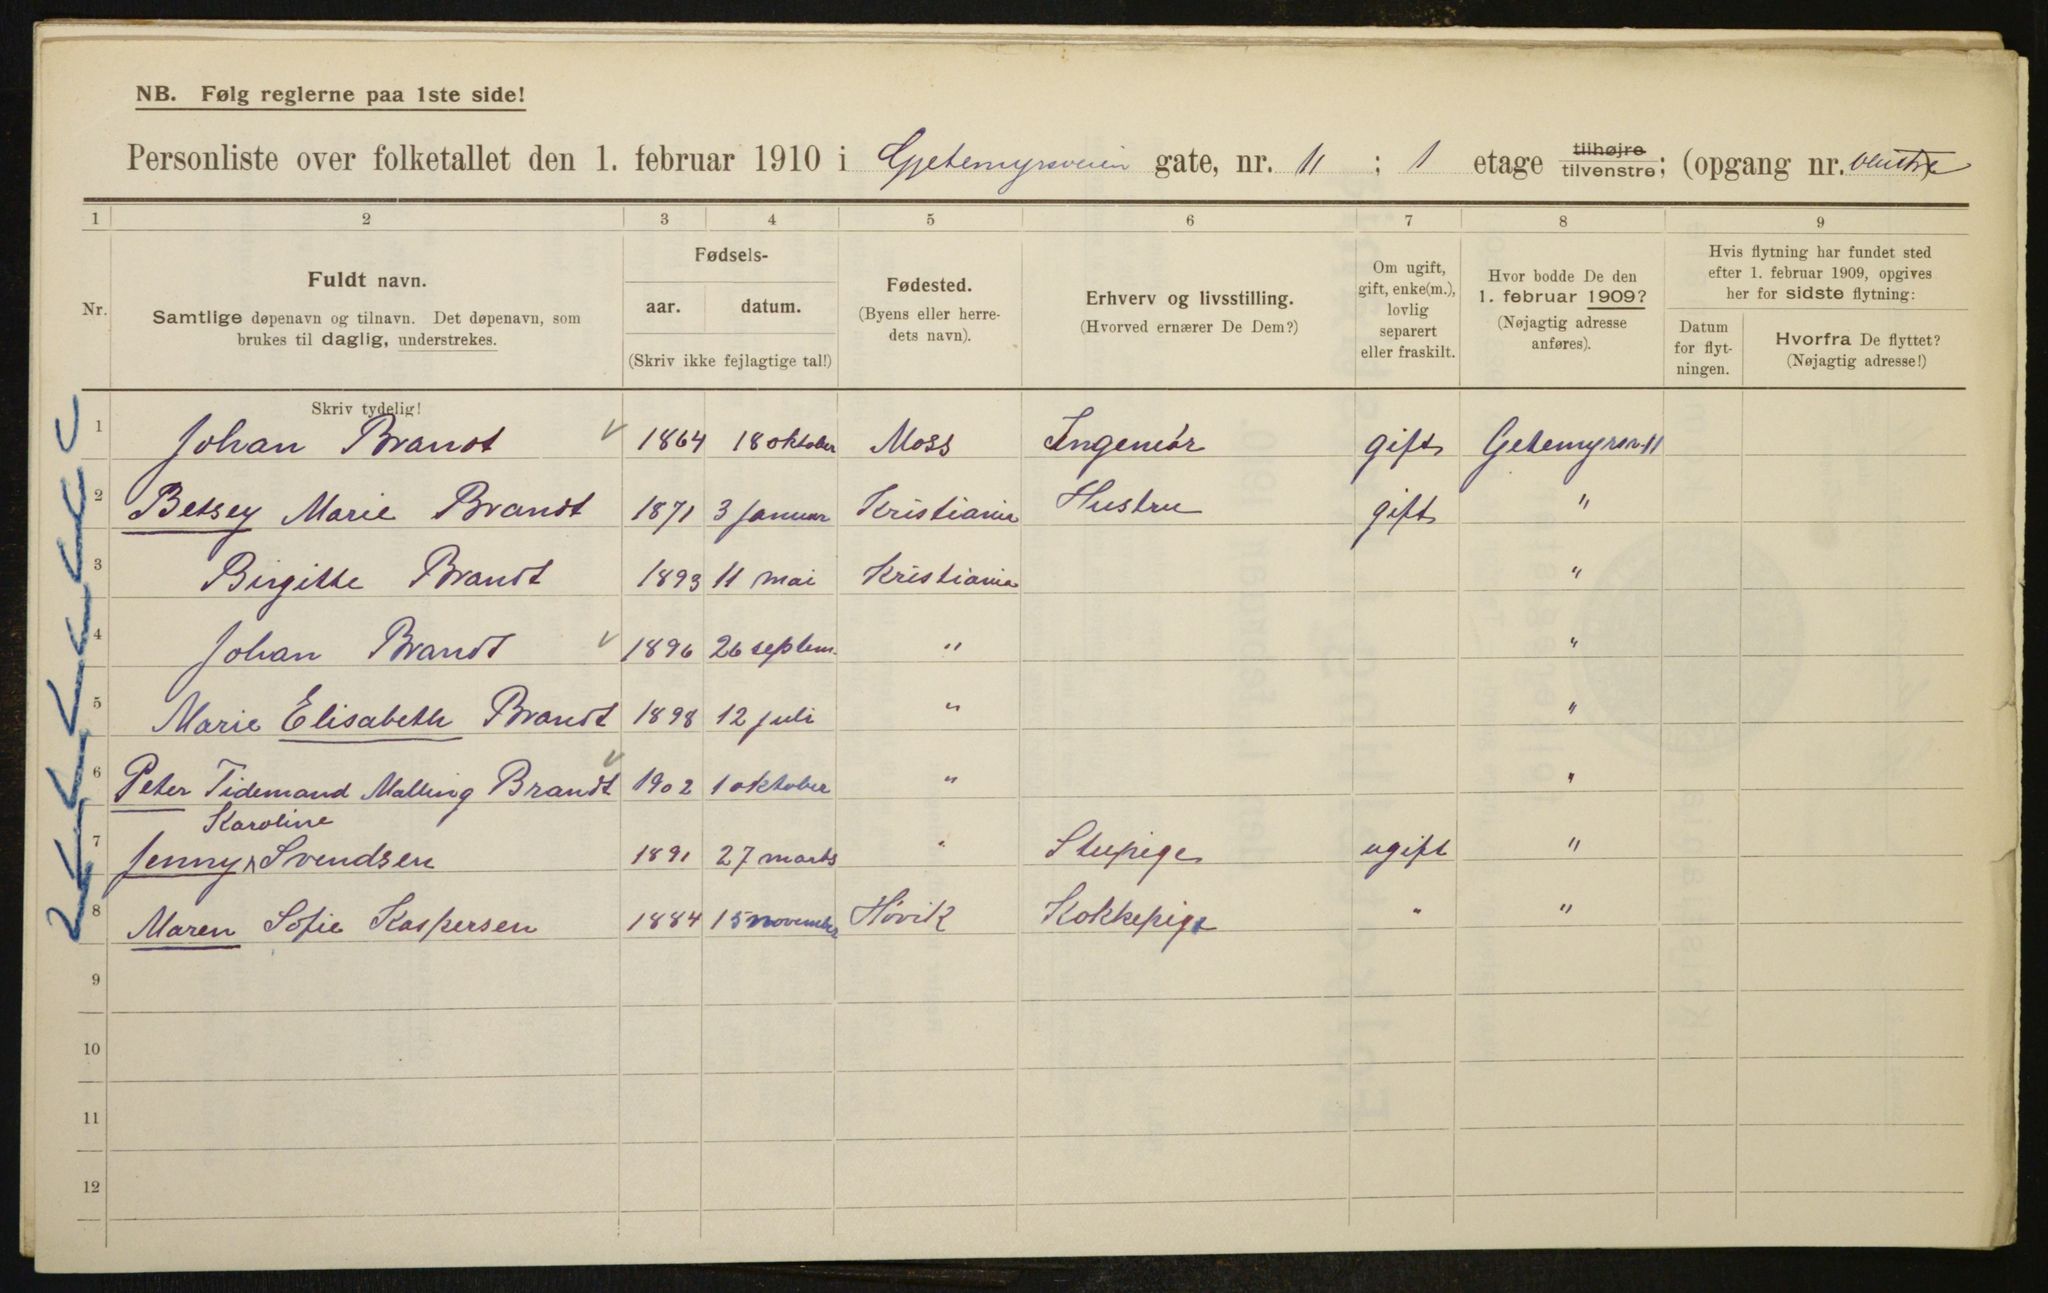 NB. Følg reglerne paa 1ste side!
Personliste over folketallet den 1. februar 1910 i Gjetemyrsveien gate, nr. 11 ; 1 etage tilhøjre tilvenstre; (opgang nr. venstre
1 2 3 4 5 6 7 8 9
Nr.
Fuldt navn.
Samtlige døpenavn og tilnavn. Det døpenavn, som
brukes til daglig, understrekes.
Fødsels-
aar. datum.
(Skriv ikke fejlagtige tal!)
Fødested.
(Byens eller herre-
dets navn).
Erhverv og livsstilling.
(Hvorved ernærer De Dem?)
Om ugift,
gift, enke(m.),
lovlig
separert
eller fraskilt.
Hvor bodde De den
1. februar 1909?
(Nøjagtig adresse
anføres).
Hvis flytning har fundet sted
efter 1. februar 1909, opgives
her for sidste flytning:
Datum
for flyt-
ningen.
Hvorfra De flyttet?
(Nøjagtig adresse!)
Skriv tydelig!
1 Johan Brandt 1864 18 oktober Moss Ingeniør gift Getemyrsv. 11
2 Betsey Marie Brandt 1871 3 januar Kristiania Hustru gift "
3 Birgitte Brandt 1893 11 mai Kristiania "
4 Johan Brandt 1896 26 septem. " "
5 Marie Elisabeth Brandt 1898 12 juli " "
6 Peter Tidemand Malling Brandt 1902 1 oktober " "
Karoline
7 Jenny Svendsen 1891 27 marts " Stupige ugift "
8 Maren Sofie Kaspersen 1884 15 november Høvik Kokkepige " "
9
10
11
12